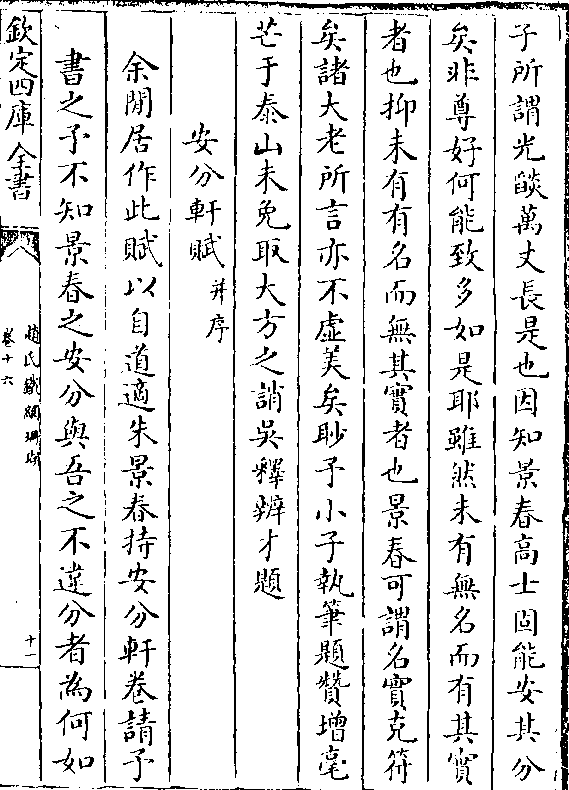 子所謂光燄萬丈長是也因知景春高士固能安其分
矣非尊好何能致多如是耶雖然未有無名而有其實
者也抑未有有名而無其實者也景春可謂名實克符
矣諸大老所言亦不虛美矣眇予小子執筆題贊增毫
芒于泰山未免取大方之誚吳釋辨才題
安分軒賦并序
余閒居作此賦以自道適朱景春持安分軒卷請予
書之予不知景春之安分與吾之不違分者為何如
欽定四庫全書
趙氏鐵網珊瑚
卷十六
十一